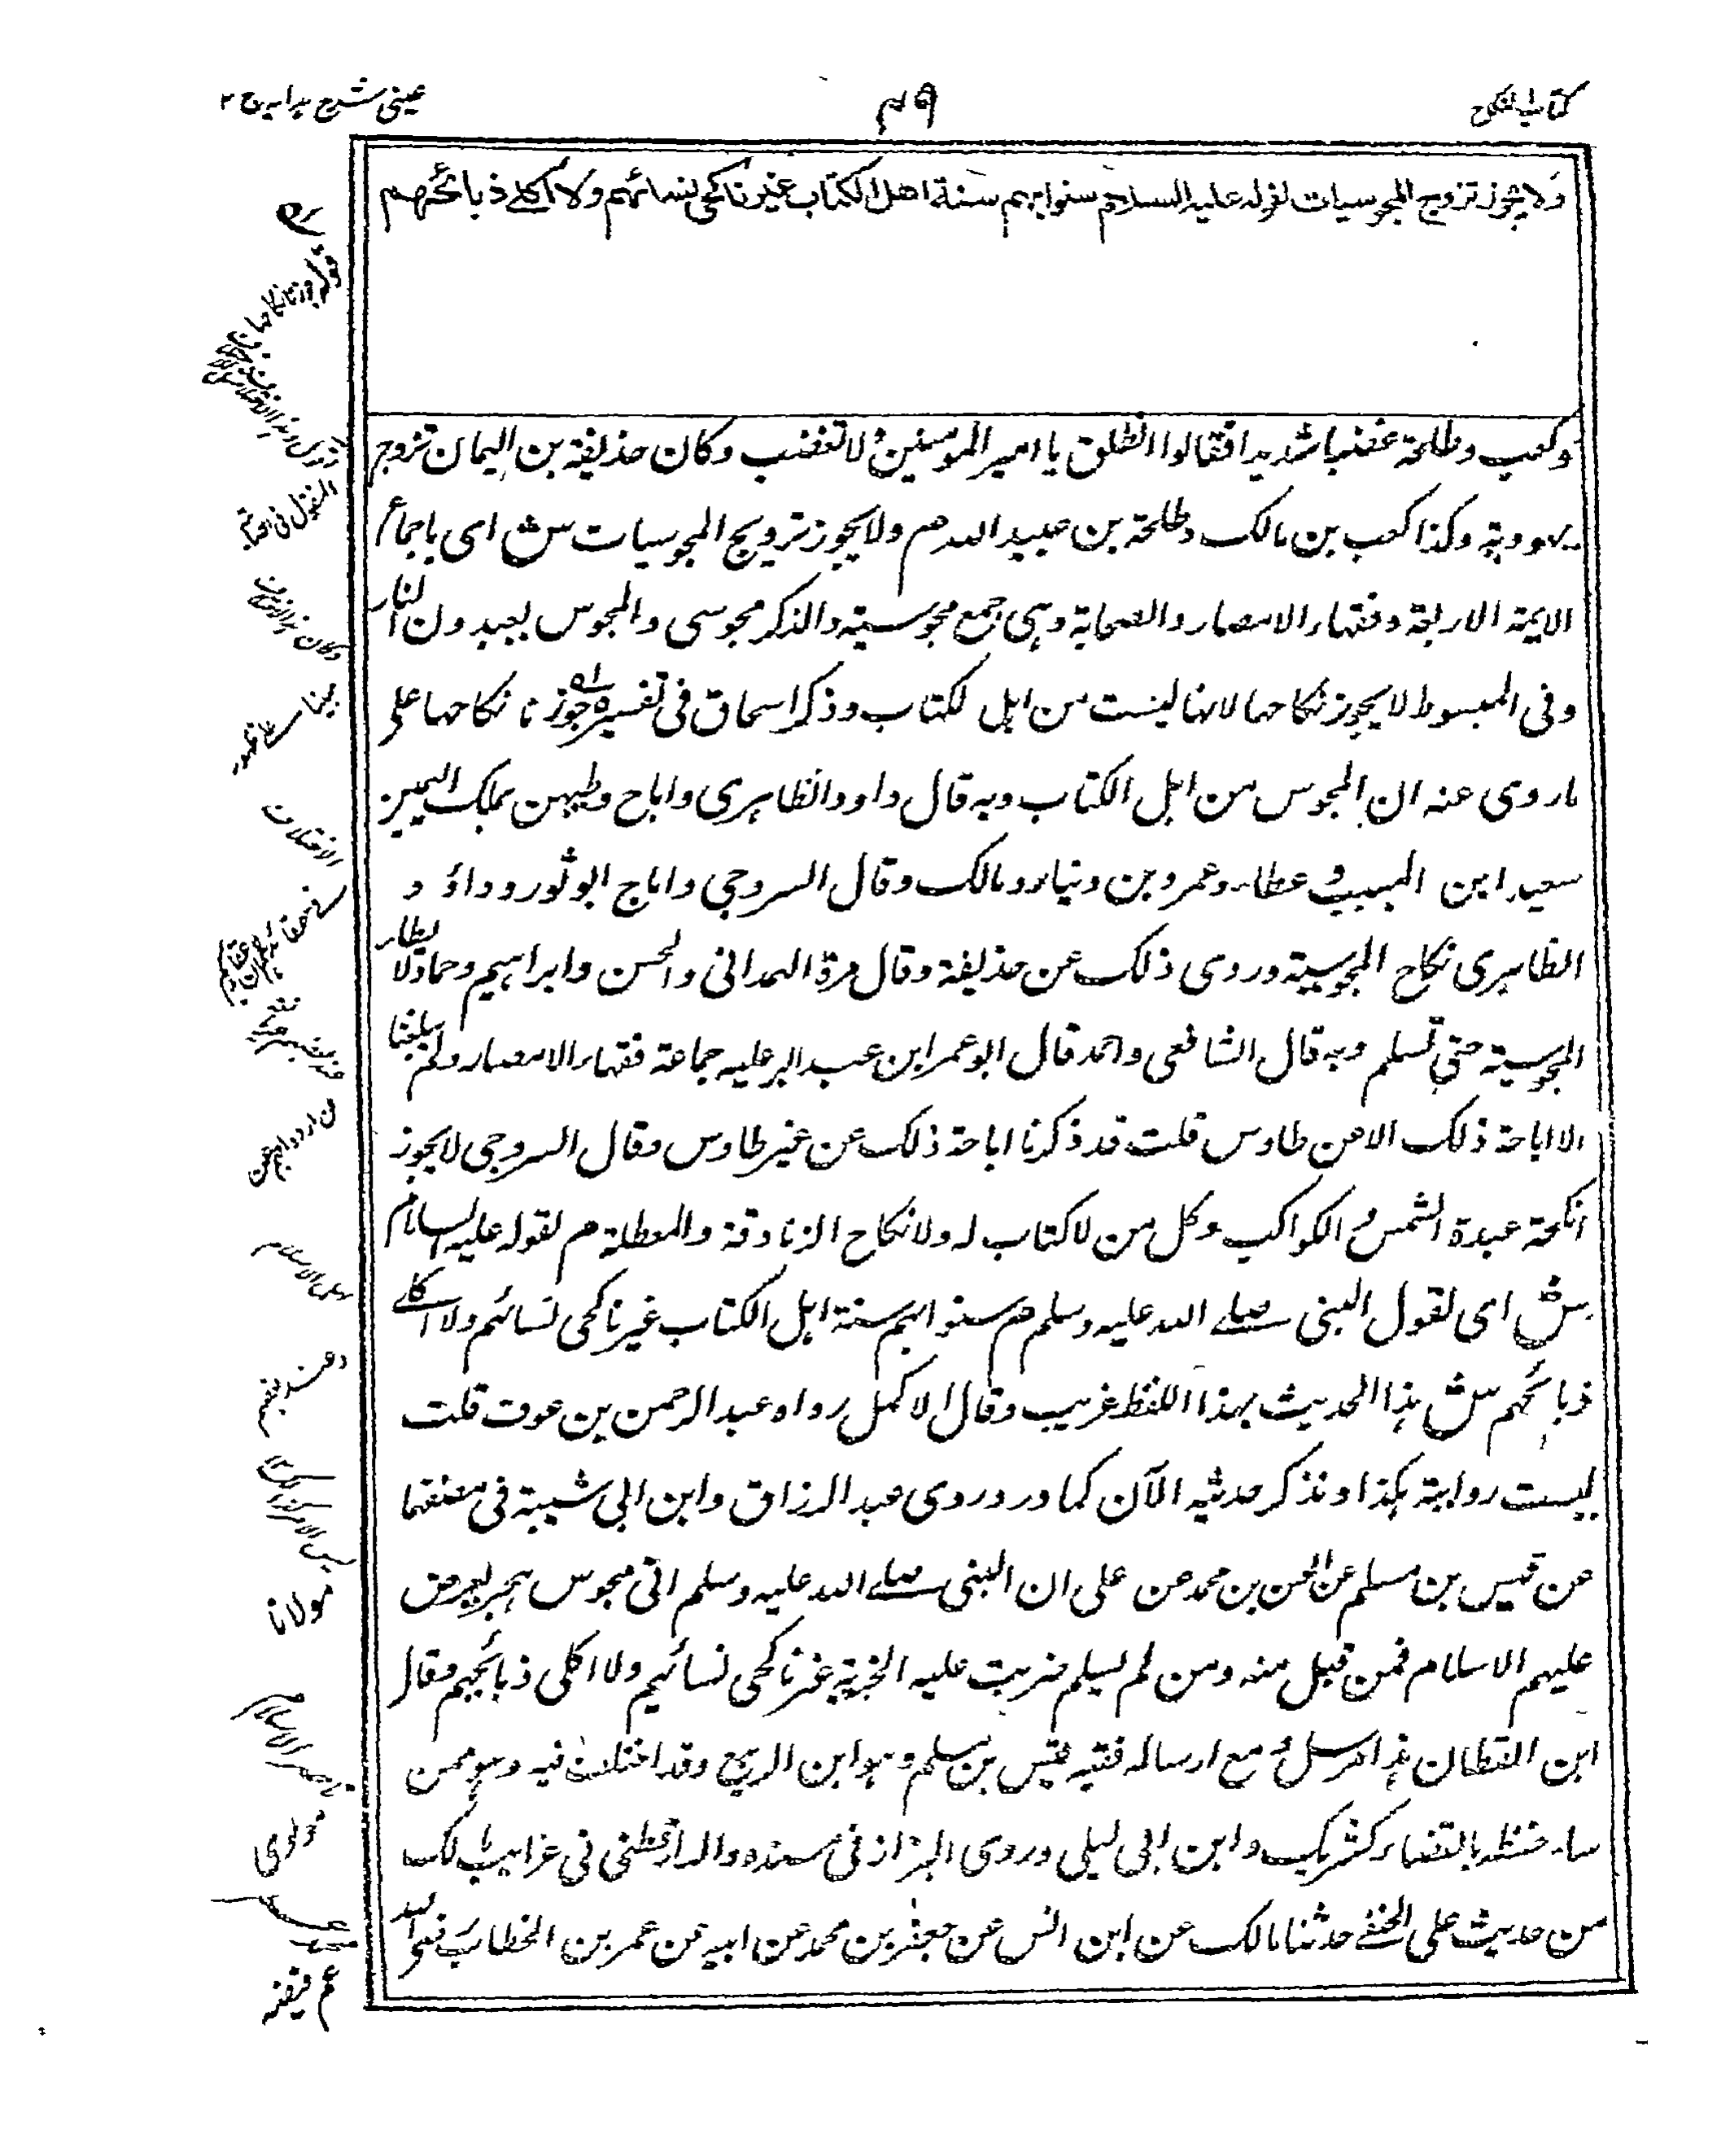 كتاب النكاح
٤٩
عينى شرح هدايه ج ٢
ولا يجوز تزوج المجوسيات لقوله عليه السلام سنوا بهم سنة اهل الكتاب غير ناكحى نسائهم ولا آكلے ذبائحهم
وكعب وطلحة غضبا شديدا فقالوا انطلق يا امير المومنين لا تغضب وكان حذيفة بن اليمان تزوج
يهودية وكذا كعب بن مالك وطلحة بن عبيد الله م ولا يجوز تزويج المجوسيات ش اى باجماع
الايمة الاربعة وفقهاء الامصار والصحابة وهى جمع مجوسية والذكر مجوسى والمجوس يعبدون النار
وفى المبسوط لا يجوز نكاحها لانها ليست من اهل لكتاب وذكر اسحاق فى تفسيره جوزنا نكاحها على
ما روى عنه ان المجوس من اهل الكتاب وبه قال داود الظاهرى واباح وطيهن بملك اليمين
سعيد ابن المسيب وعطاء وعمرو بن دينار ومالك وقال السروجى واباح ابو ثور وداؤد
الظاهرى نكاح المجوسية وروى ذلك عن حذيفة وقال مرة الهمدانى والحسن وابراهيم وحماد لا يطاء
المجوسية حتى تسلم وبه قال الشافعى واحمد قال ابو عمر ابن عبد البر عليه جماعة فقهاء الامصار ولم يبلغنا
الا اباحة ذلك الا عن طاوس قلت قد ذكرنا اباحة ذلك عن غير طاوس وقال السروجى لا يجوز
انكحة عبدة الشمس والكواكب وكل من لا كتاب له ولا نكاح الزنادقة والمعطلة م لقوله عليه السلام
ش اى لقول النبى صلے الله عليه وسلم م سنوا بهم سنة اهل الكتاب غير ناكحى نسائهم ولا آكلے
ذبائحهم ش هذا الحديث بهذا اللفظ غريب وقال الاكمل رواه عبد الرحمن بن عوف قلت
ليست رواية هكذا ونذكر حديثه الآن كما ورد وروى عبد الرزاق وابن ابى شيبة فى مصنفهما
عن قيس بن مسلم عن الحسن بن محمد عن على ان النبى صلے الله عليه وسلم اتى مجوس هجر يعرض
عليهم الاسلام فمن قبل منه ومن لم يسلم ضربت عليه الجزية غير ناكحى نسائهم ولا اكلى ذبائحهم وقال
ابن القطان هذا مرسل و مع ارساله ففيه قيس بن مسلم وهو ابن الربيع وقد اختلف فيه وهو ممن
ساء حفظه بالقضاء كشريك وابن ابى ليلى وروى البزاز فى مسنده والدارقطنى فى غرايب مالك
من حديث على الحنفے حدثنا مالك عن ابن انس عن جعفر بن محمد عن ابيه عن عمر بن الخطاب
مولانا
مولوى